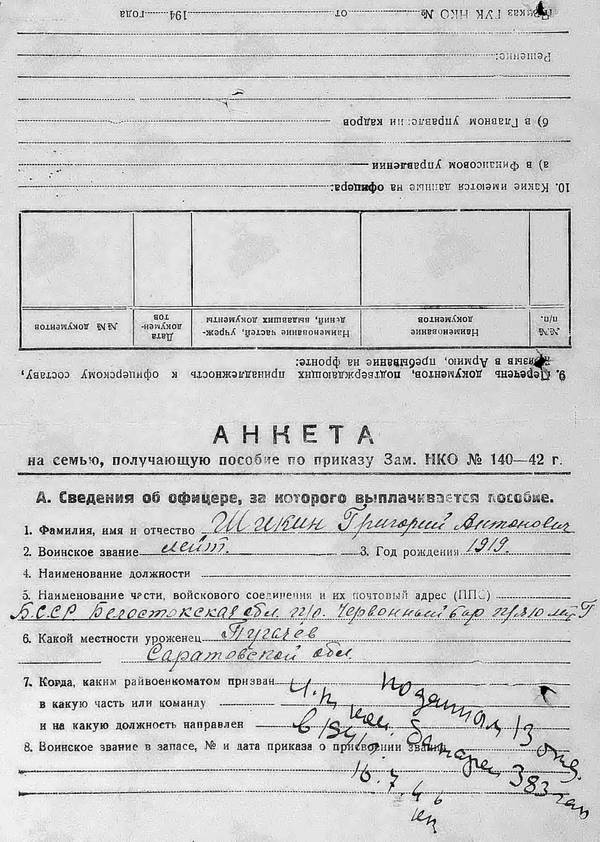 Приказ ГУК НКО № от 194 года
Решение:
б) в Главном управлении кадров
а) в Финансовом управлении
10. Какие имеются данные на офицера:
№№ п/п. Наименование документов Наименование частей, учреждений, выдавших документы Дата документов №№ документов
9. Перечень документов, подтверждающих принадлежность к офицерскому составу,
призыв в Армию, пребывание на фронте:
АНКЕТА
на семью, получающую пособие по приказу Зам. НКО № 140—42 г.
А. Сведения об офицере, за которого выплачивается пособие.
1. Фамилия, имя и отчество Шикин Григорий Антонович
2. Воинское звание лейт. 3. Год рождения 1919.
4. Наименование должности
5. Наименование чести, войскового соединения и их почтовый адрес (ППС)
БССР Белостокская обл. п/о. Червонный бор п/я
6. Какой местности уроженец Пугачев
Саратовской обл.
7. Когда, каким райвоенкоматом призван
в какую часть или команду
и на какую должность направлен
8. Воинское звание в запасе, № и дата приказа о присвоении звания
по данным 13
батареи 383
16.7.46